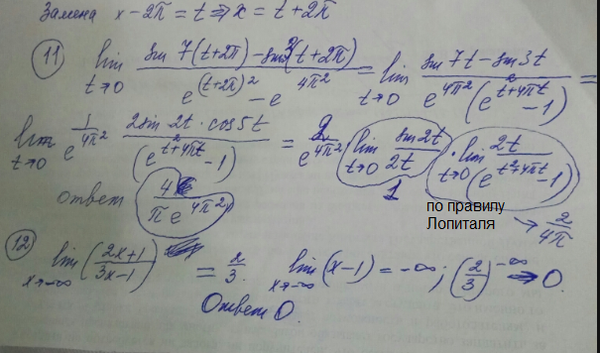 Замена x-2π = t ⇒ x = t+2π
(11) lim t→0 (sin 7(t+2π) - sin 3(t+2π)) / (e^(t+2π)² - e^4π²) = lim t→0 (sin 7t - sin 3t) / (e^4π² (e^t²+4πt - 1)) =
lim t→0 1/e^4π² · (2 sin 2t · cos 5t) / (e^t²+4πt - 1) = 2/e^4π² · lim t→0 (sin 2t)/(2t) · lim t→0 2t/(e^t²+4πt - 1)
1
ответ
по правилу
Лопиталя
→ 2/4π
(12) lim x→-∞ ((2x+1)/(3x-1)) = 2/3. lim x→-∞ (x-1) = -∞; (2/3)^-∞ → 0.
Ответ 0.